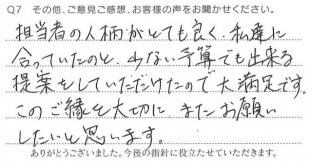 Q7 その他、ご意見ご感想、お客様の声をお聞かせください。
担当者の人柄がとても良く、私達に
合っていたのと、少ない予算でも出来る
提案をしていただけたので大満足です。
このご縁を大切に またお願い
したいと思います。
ありがとうございました。今後の指針に役立たせていただきます。